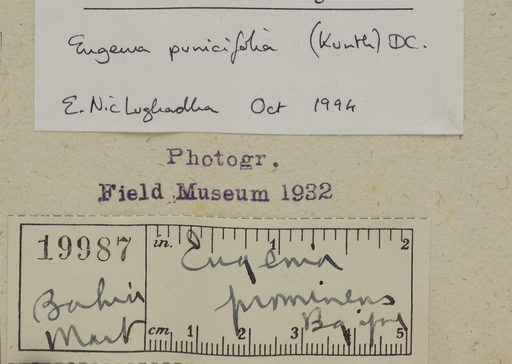 Eugenia punicifolia (Kunth) DC.
E. NicLughadha Oct 1994
Photogr,
Field Museum 1932
19987
in. 1 2
Eugenia
Bahia
prominens
Mart
cm 1 2 3 5